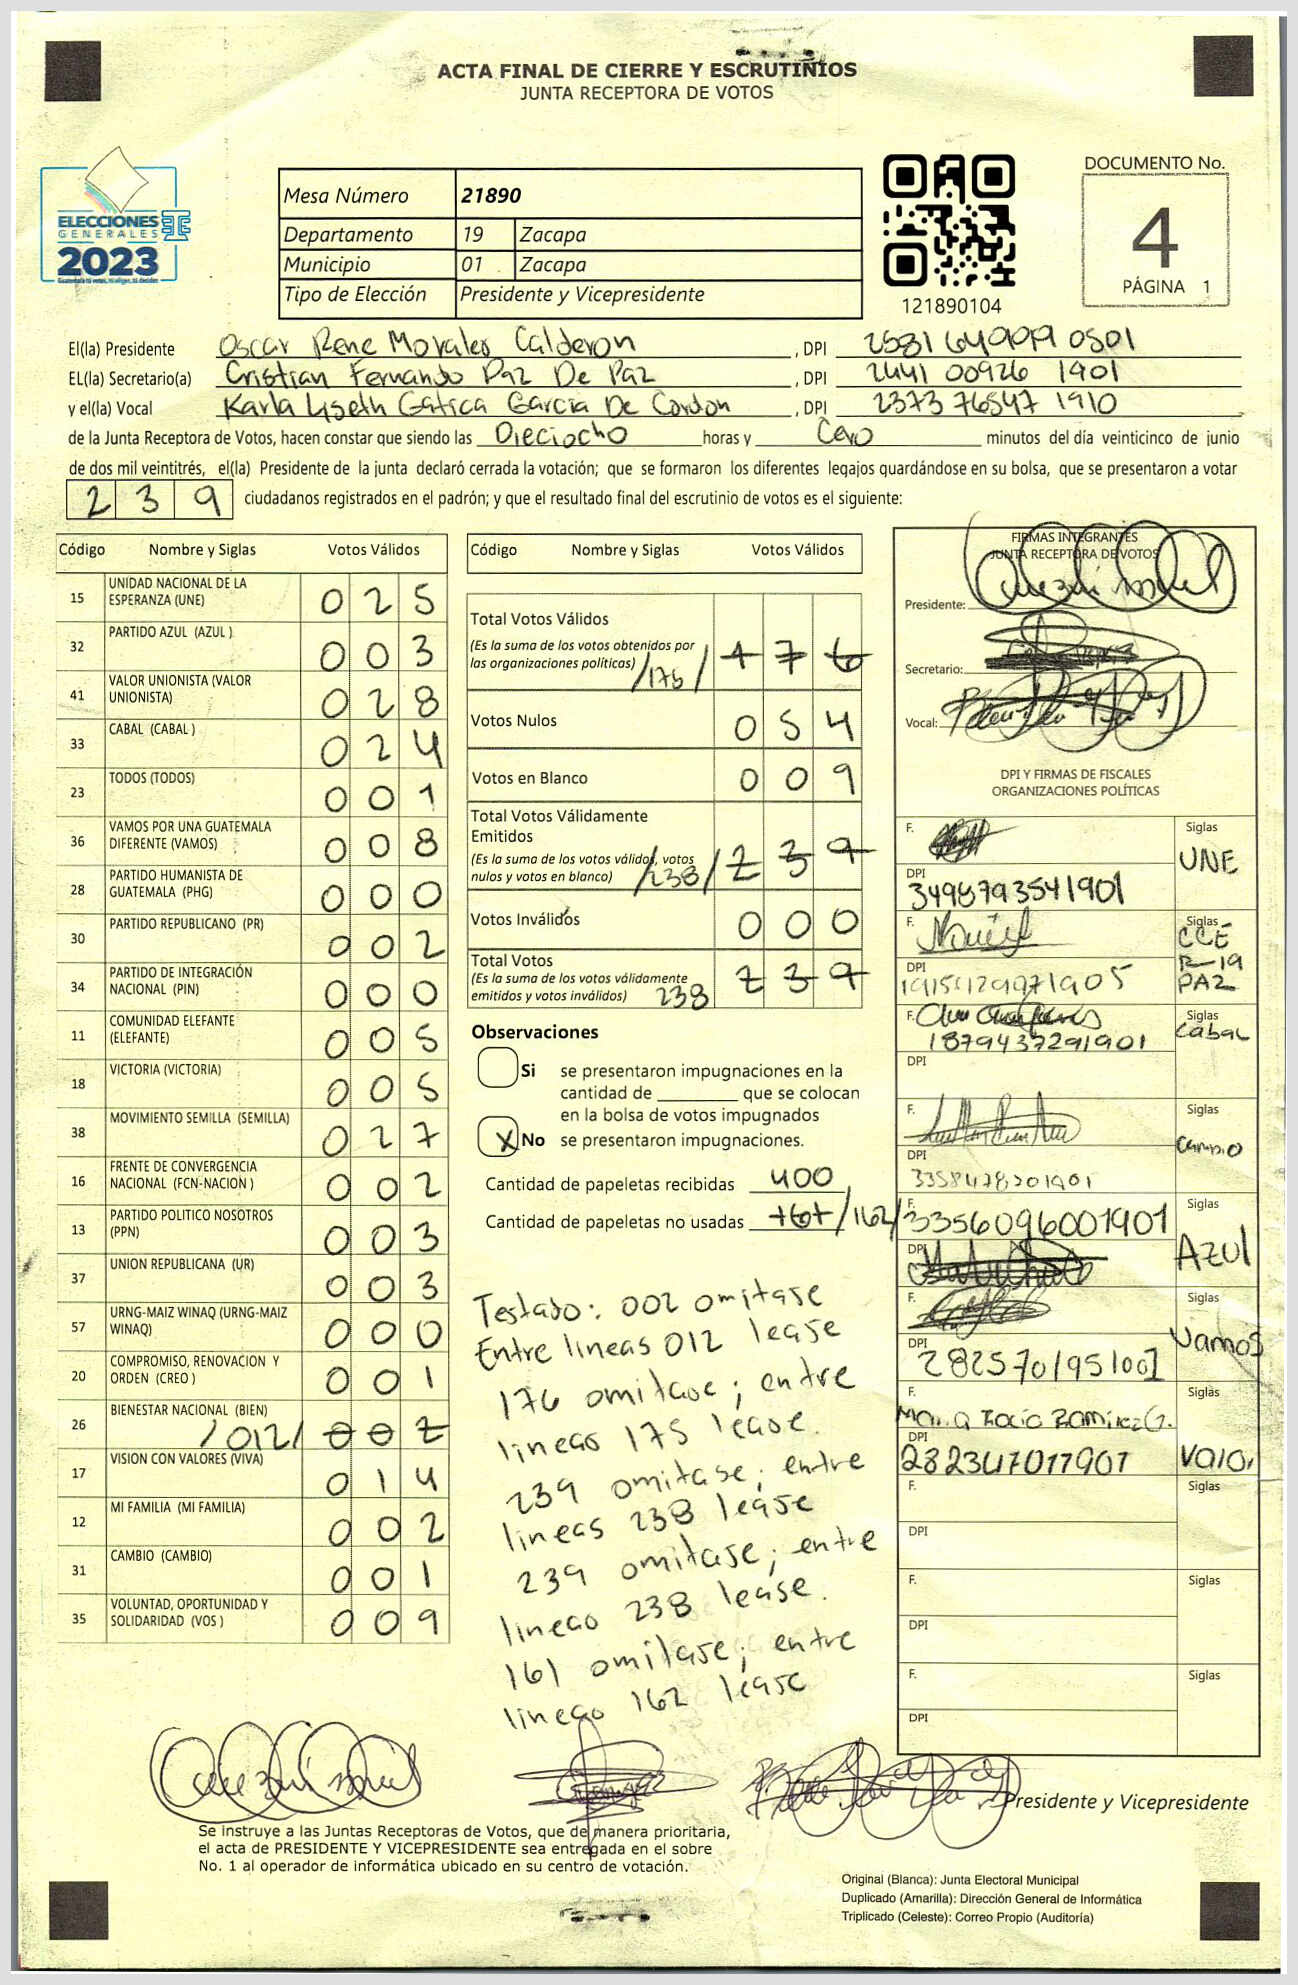 ACTA FINAL DE CIERRE Y ESCRUTINIOS
JUNTA RECEPTORA DE VOTOS
ELECCIONES
GENERALES
2023
Mesa Número 21890
Departamento 19 Zacapa
Municipio 01 Zacapa
Tipo de Elección Presidente y Vicepresidente
121890104
DOCUMENTO No.
4
PÁGINA 1
El(la) Presidente Oscar Rene Morales Calderon , DPI
EL(la) Secretario(a) Cristian Fernando Paz De Paz , DPI 2441 00926 1901
y el(la) Vocal Karla Liseth Gatica Garcia De Cordon , DPI 2373 76547 1910
de la Junta Receptora de Votos, hacen constar que siendo las Dieciocho horas y Cero minutos del día veinticinco de junio
de dos mil veintitrés, el(la) Presidente de la junta declaró cerrada la votación; que se formaron los diferentes legajos guardándose en su bolsa, que se presentaron a votar
239 ciudadanos registrados en el padrón; y que el resultado final del escrutinio de votos es el siguiente:
Código Nombre y Siglas Votos Válidos
15 UNIDAD NACIONAL DE LA ESPERANZA (UNE) 025
32 PARTIDO AZUL (AZUL ) 003
41 VALOR UNIONISTA (VALOR UNIONISTA) 028
33 CABAL (CABAL ) 024
23 TODOS (TODOS) 001
36 VAMOS POR UNA GUATEMALA DIFERENTE (VAMOS) 008
28 PARTIDO HUMANISTA DE GUATEMALA (PHG) 000
30 PARTIDO REPUBLICANO (PR) 002
34 PARTIDO DE INTEGRACIÓN NACIONAL (PIN) 000
11 COMUNIDAD ELEFANTE (ELEFANTE) 005
18 VICTORIA (VICTORIA) 005
38 MOVIMIENTO SEMILLA (SEMILLA) 027
16 FRENTE DE CONVERGENCIA NACIONAL (FCN-NACION ) 002
13 PARTIDO POLITICO NOSOTROS (PPN) 003
37 UNION REPUBLICANA (UR) 003
57 URNG-MAIZ WINAQ (URNG-MAIZ WINAQ) 000
20 COMPROMISO, RENOVACION Y ORDEN (CREO ) 001
26 BIENESTAR NACIONAL (BIEN) /012/ 002
17 VISION CON VALORES (VIVA) 014
12 MI FAMILIA (MI FAMILIA) 002
31 CAMBIO (CAMBIO) 001
35 VOLUNTAD, OPORTUNIDAD Y SOLIDARIDAD (VOS ) 009
Código Nombre y Siglas Votos Válidos
Total Votos Válidos
(Es la suma de los votos obtenidos por
las organizaciones políticas) /175/ 176
Votos Nulos 054
Votos en Blanco 009
Total Votos Válidamente
Emitidos
(Es la suma de los votos válidos, votos
nulos y votos en blanco) /238/ 239
Votos Inválidos 000
Total Votos
(Es la suma de los votos válidamente
emitidos y votos inválidos) 238 239
Observaciones
Si se presentaron impugnaciones en la
cantidad de ________ que se colocan
en la bolsa de votos impugnados
X No se presentaron impugnaciones.
Cantidad de papeletas recibidas 400
Cantidad de papeletas no usadas 161 /162/
Testado: 002 omitase
Entre lineas 012 lease
176 omitase; entre
lineas 175 lease.
239 omitase; entre
lineas 238 lease
239 omitase; entre
lineas 238 lease.
161 omitase; entre
lineas 162 lease
FIRMAS INTEGRANTES
JUNTA RECEPTORA DE VOTOS
Presidente:
Secretario:
Vocal:
DPI Y FIRMAS DE FISCALES
ORGANIZACIONES POLÍTICAS
F. Siglas UNE
DPI 3498793541901
F. Siglas
DPI
F. Siglas Cabal
1879437291901
DPI
F. Siglas Cambio
DPI
F. 3356096001901 Siglas Azul
DPI
F. Siglas Vamos
DPI 2825701951001
F. Maria Rocio Ramirez G. Siglas Valor
DPI
F. Siglas
DPI
F. Siglas
DPI
F. Siglas
DPI
Presidente y Vicepresidente
Se instruye a las Juntas Receptoras de Votos, que de manera prioritaria,
el acta de PRESIDENTE Y VICEPRESIDENTE sea entregada en el sobre
No. 1 al operador de informática ubicado en su centro de votación.
Original (Blanca): Junta Electoral Municipal
Duplicado (Amarilla): Dirección General de Informática
Triplicado (Celeste): Correo Propio (Auditoría)